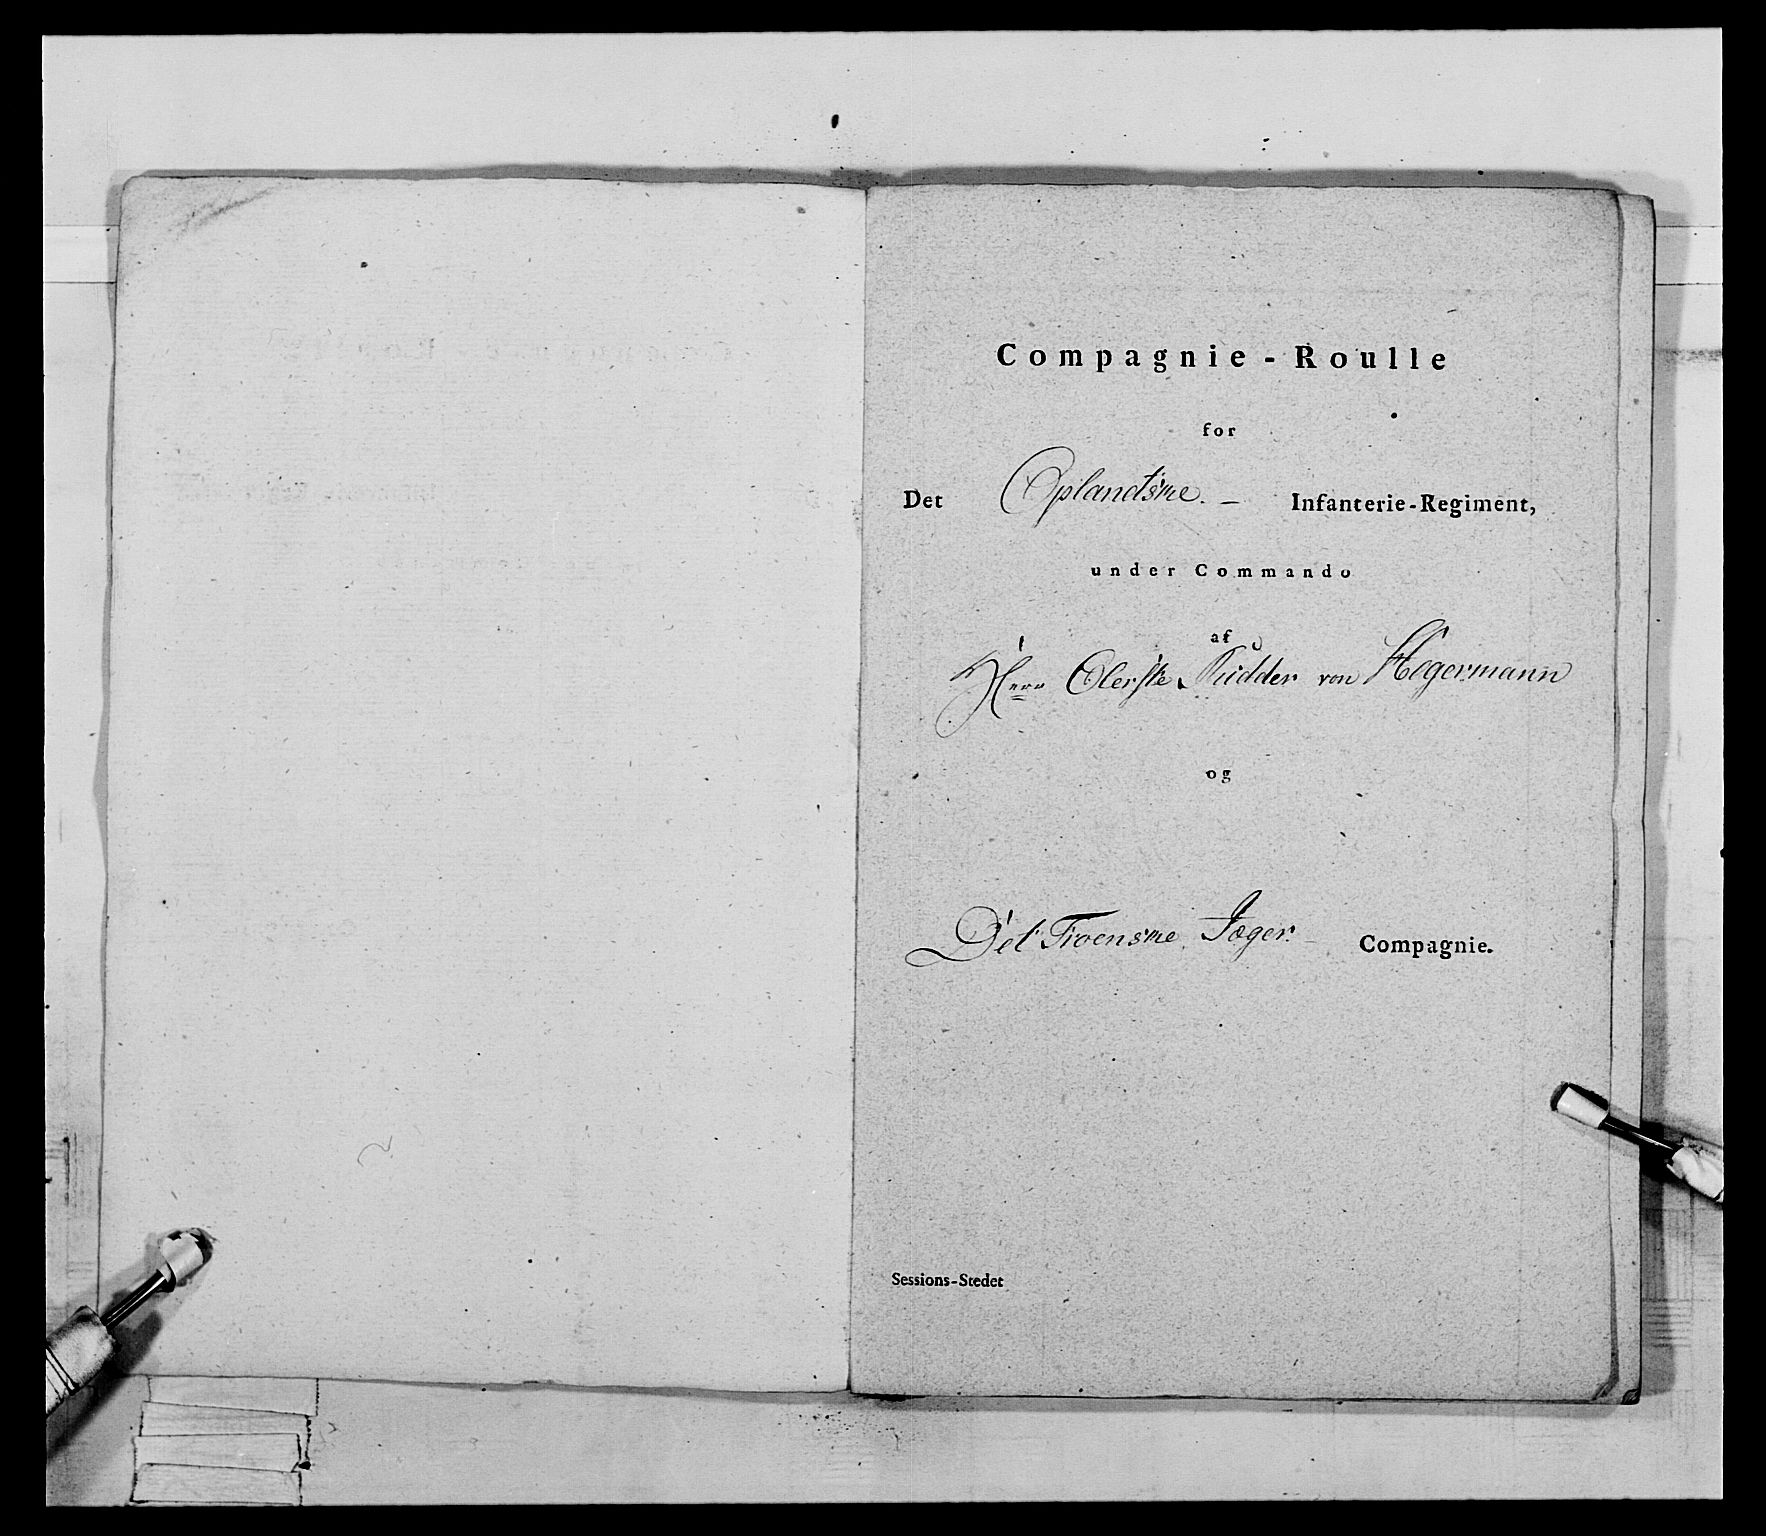 Compagnie-Roulle
for
Det Oplandske. – Infanterie-Regiment,
under Commando
af
Herr Oberste Ridder von Hegermann
og
Det Troenske Jæger. – Compagnie.
Sessions-Stedet